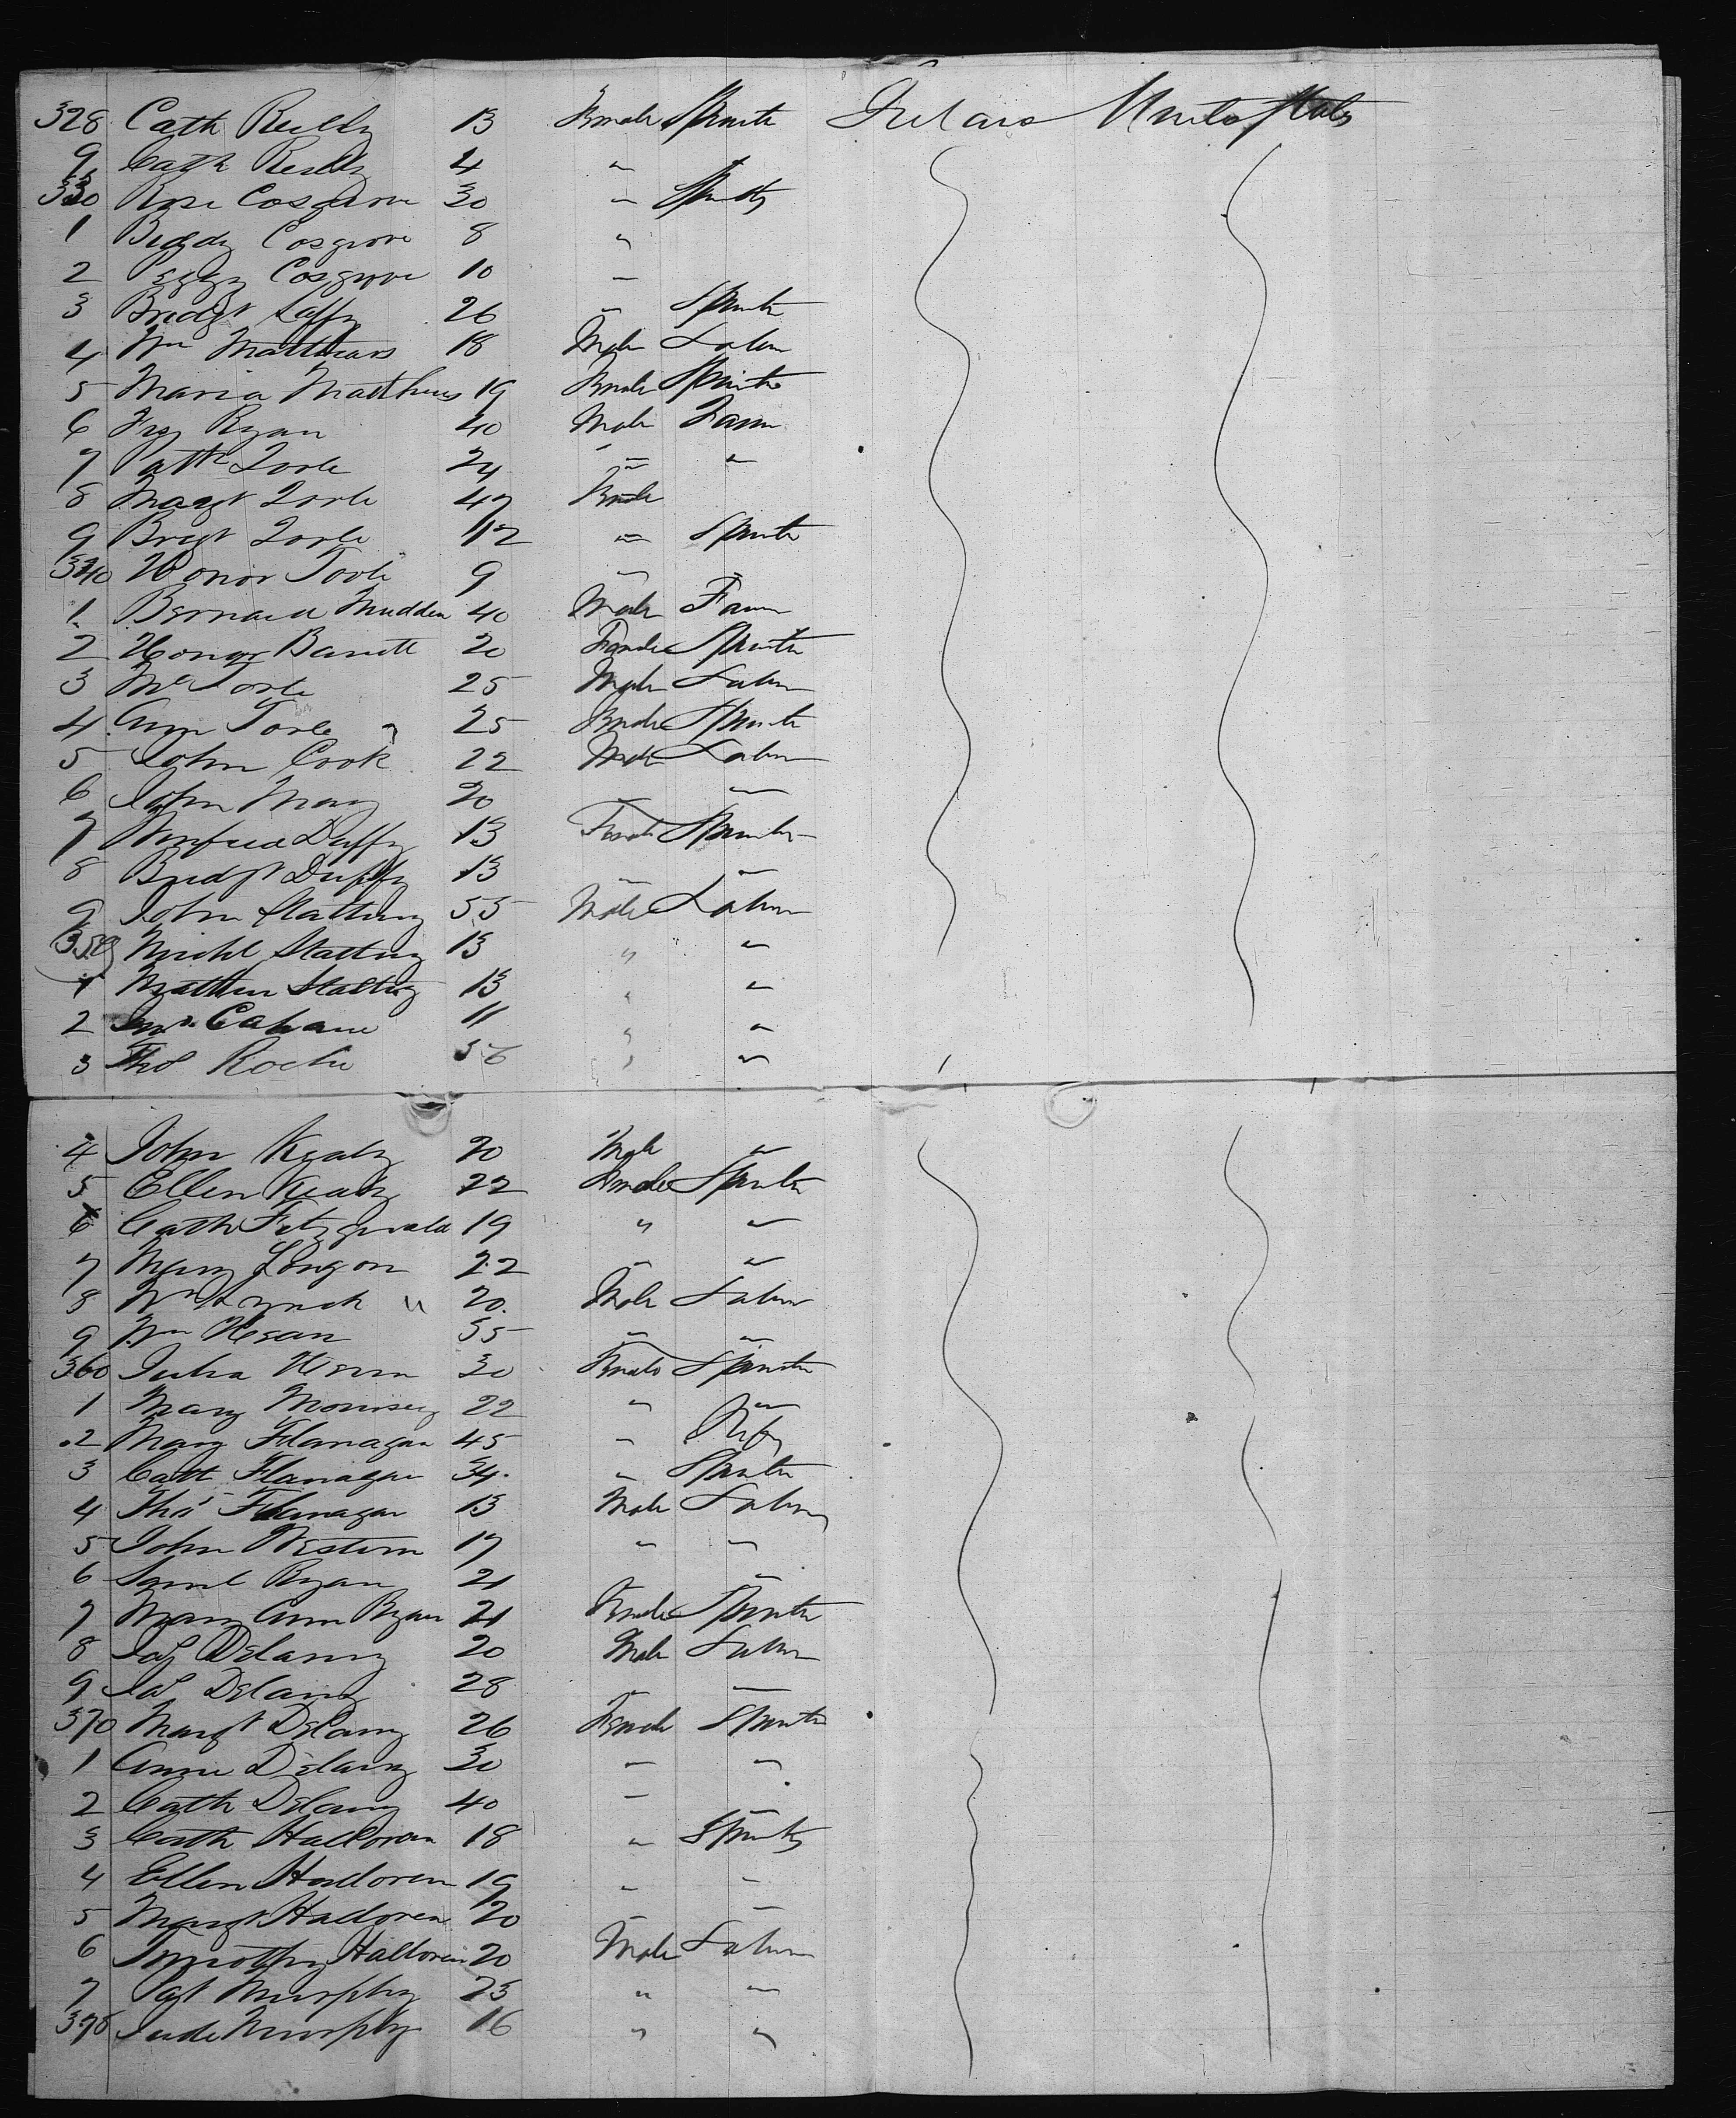 328 Cath Reilly 13 Female Spinster Ireland United States
9 Cath Reilly 4 "
330 Rose Cosgrove 30 " Spinster
1 Biddy Cosgrove 8 "
2 Peggy Cosgrove 10 "
3 Bridgt Laffy 26 " Spinster
4 Wm Matthews 18 Male Labor
5 Maria Matthews 19 Female Spinster
6 Ryan 40 Male Farmer
7 Patk Toole 24 " "
8 Margt Toole 47 Female
9 Brigt Toole 12 " Spinster
340 Honor Toole 9 "
1 Bernard Mudden 40 Male Farmer
2 Honor Barrett 20 Female Spinster
3 Toole 25 Male Labor
4 Ann Toole 25 Female Spinster
5 John Cook 22 Male Labor
6 John May 20 " "
7 Winfred Duffy 13 Female Spinster
8 Bridgt Duffy 13 " "
9 John Slattery 55 Male Labor
350 Michl Slattery 13 " "
1 Matthew Slattery 13 " "
2 Cahane 11 " "
3 Thos Roche 56 " "
4 John Kealy 20 Male "
5 Ellen Kealy 22 Female Spinster
6 Cath Fitzgerald 19 " "
7 Mary Longon 22 " "
8 Wm Lynch 20 Male Labor
9 Wm Hegan 55 " "
360 Julia 30 Female Spinster
1 Mary Morrisey 22 " "
2 Mary Flanagan 45 " Wife
3 Cath Flanagan 34 " Spinster
4 Thos Flanagan 13 Male Labor
5 John Western 17 " "
6 Saml Ryan 21 " "
7 Mary Ann Ryan 21 Female Spinster
8 Jas Delany 20 Male Labor
9 Jas Delany 28 " "
370 Margt Delany 26 Female Spinster
1 Anne Delany 30 " "
2 Cath Delany 40 " "
3 Cath Halloran 18 " Spinster
4 Ellen Halloren 19 " "
5 Margt Halloren 20 " "
6 Timothy Halloren 20 Male Labor
7 Pat Murphy 23 " "
378 Jude Murphy 16 " "